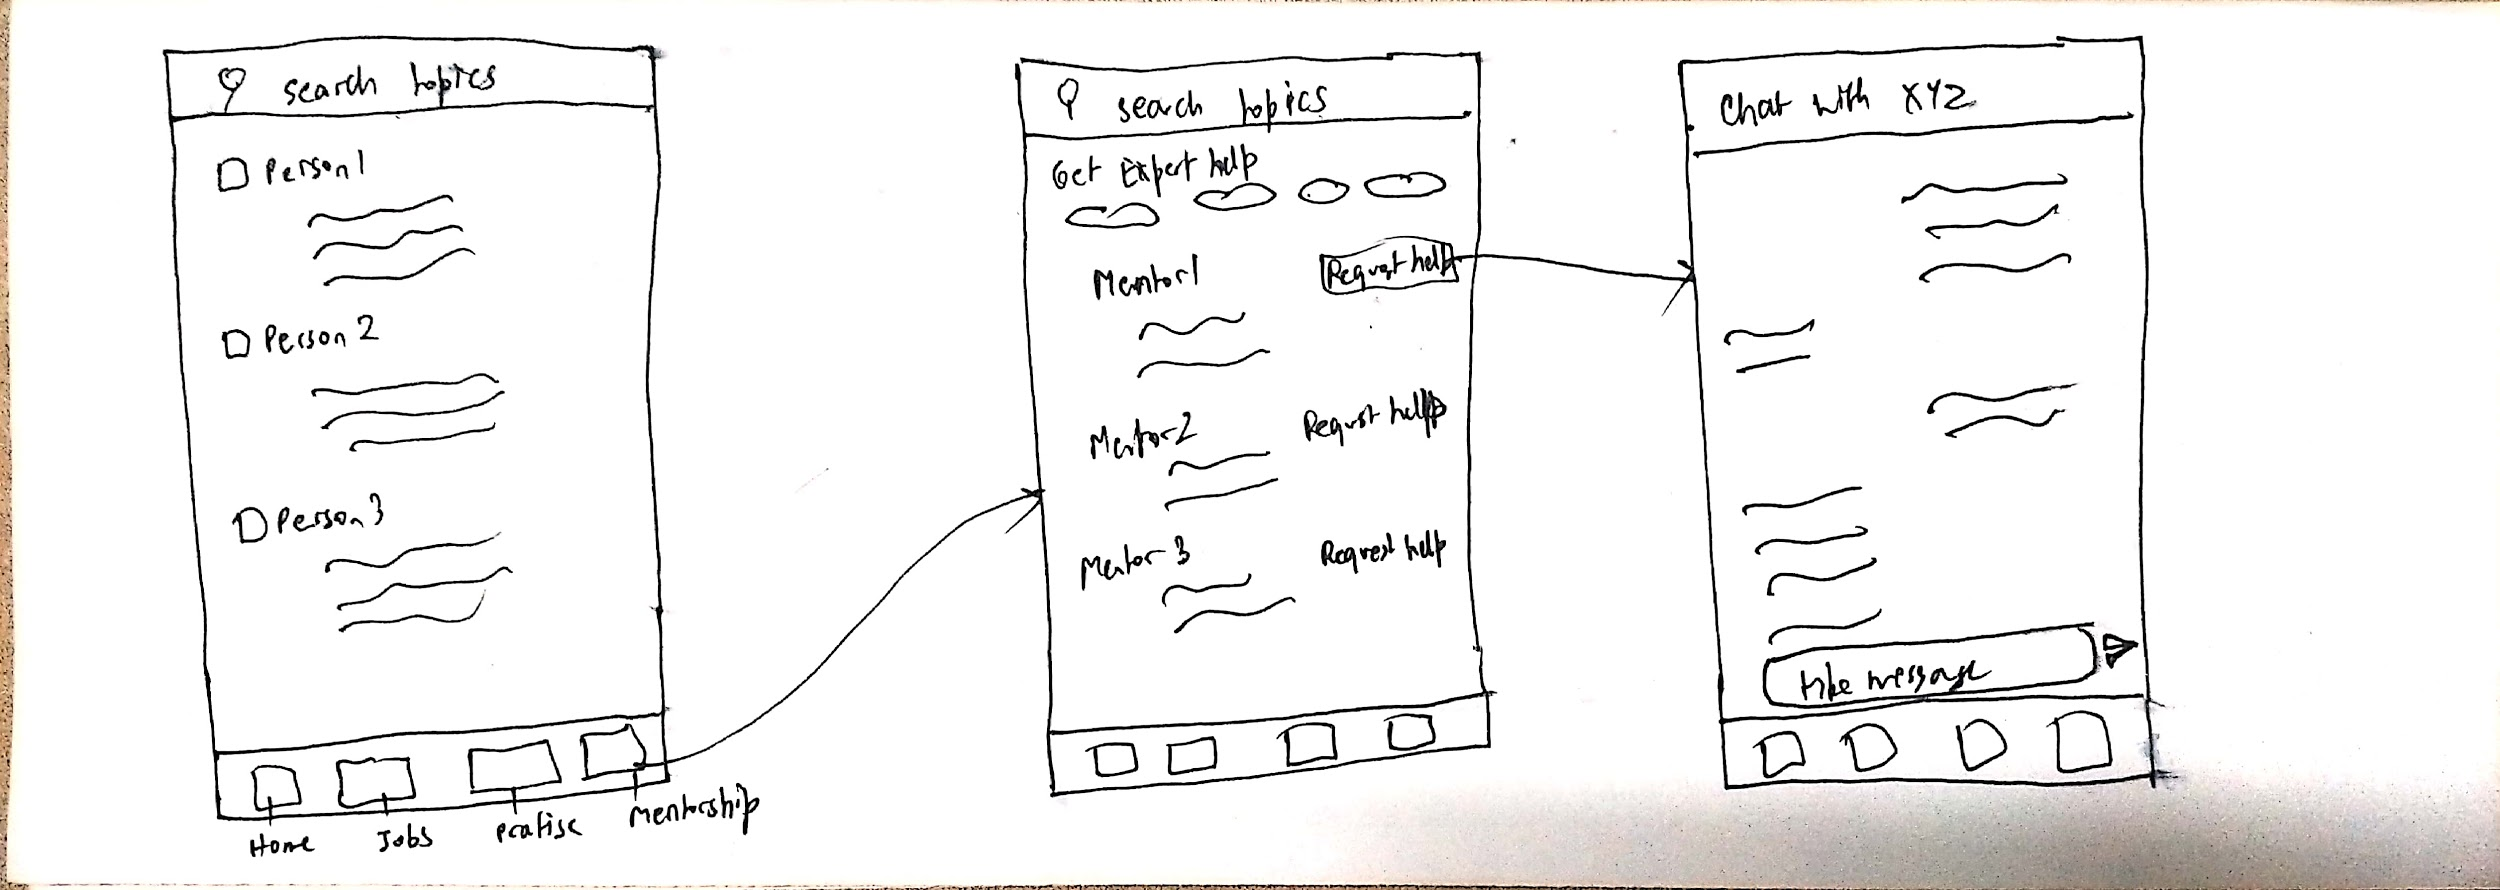 search topics
Person1
Person 2
Person 3
Home
Jobs
Pratise
Mentorship
search topics
Get Expert help
Mentor1
Request help
Mentor2
Request help
Mentor 3
Request help
Chat with XYZ
type message